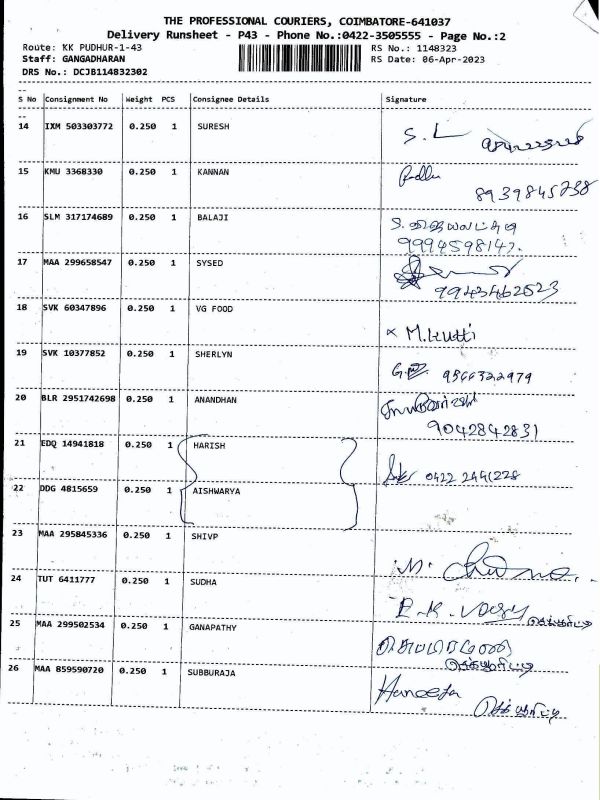 THE PROFESSIONAL COURIERS, COIMBATORE-641037
Delivery Runsheet - P43 - Phone No.:0422-3505555 - Page No.:2
Route: KK PUDHUR-1-43 RS No.: 1148323
Staff: GANGADHARAN RS Date: 06-Apr-2023
DRS No.: DCJB114832302
S No Consignment No Weight PCS Consignee Details Signature
14 IXM 503303772 0.250 1 SURESH S. L
15 KMU 3368330 0.250 1 KANNAN
8939845738
16 SLM 317174689 0.250 1 BALAJI
9994598147.
17 MAA 299658547 0.250 1 SYSED
9943462523
18 SVK 60347896 0.250 1 VG FOOD
x M.kutti
19 SVK 10377852 0.250 1 SHERLYN
9566322979
20 BLR 2951742698 0.250 1 ANANDHAN
9042842831
21 EDQ 14941818 0.250 1 HARISH
0422 2441228
22 DDG 4815659 0.250 1 AISHWARYA
23 MAA 295845336 0.250 1 SHIVP
24 TUT 6411777 0.250 1 SUDHA
25 MAA 299502534 0.250 1 GANAPATHY
செக்யூரிட்டி
26 MAA 859590720 0.250 1 SUBBURAJA Haneefa
செக்யூரிட்டி